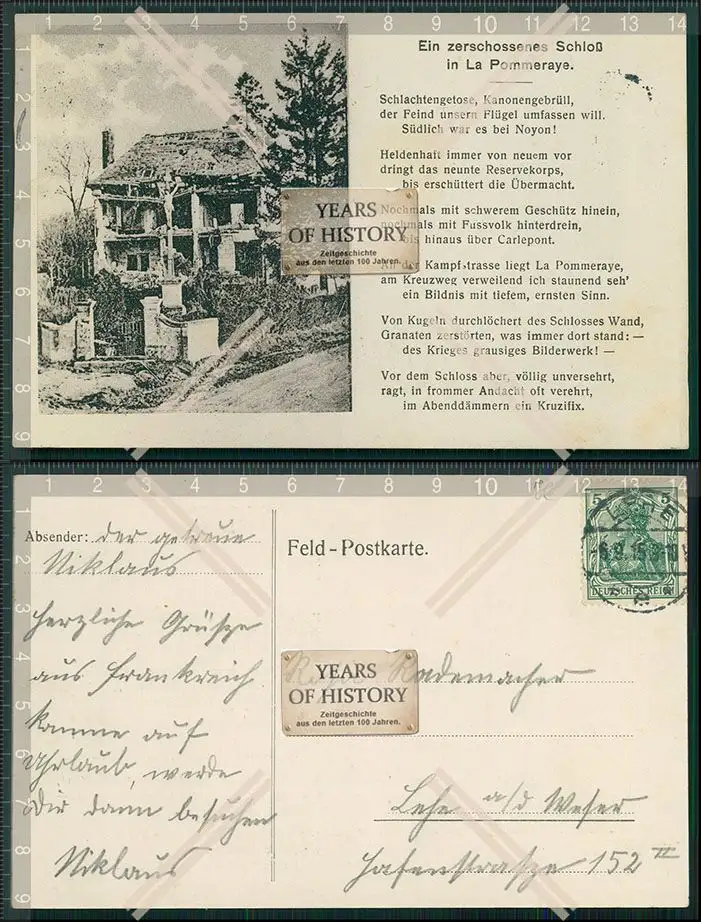 Ein zerschossenes Schloß
in La Pommeraye.
Schlachtengetose, Kanonengebrüll,
der Feind unsern Flügel umfassen will.
Südlich war es bei Noyon!
Heldenhaft immer von neuem vor
dringt das neunte Reservekorps,
bis erschüttert die Übermacht.
Nochmals mit schwerem Geschütz hinein,
nochmals mit Fussvolk hinterdrein,
bis hinaus über Carlepont.
An der Kampfstrasse liegt La Pommeraye,
am Kreuzweg verweilend ich staunend seh'
ein Bildnis mit tiefem, ernsten Sinn.
Von Kugeln durchlöchert des Schlosses Wand,
Granaten zerstörten, was immer dort stand: —
des Krieges grausiges Bilderwerk! —
Vor dem Schloss aber, völlig unversehrt,
ragt, in frommer Andacht oft verehrt,
im Abenddämmern ein Kruzifix.
YEARS
OF HISTORY
Zeitgeschichte
aus den letzten 100 Jahren.
Absender: der getreue
Niklaus
Herzliche Grüsze
aus Frankreich
komme auf
Uhrlaub, werde
Dir dann besuchen
Niklaus
Feld-Postkarte.
5 5
DEUTSCHES REICH
Rademacher
YEARS
OF HISTORY
Zeitgeschichte
aus den letzten 100 Jahren.
Lehe a/d Weser
Hafenstrasze 152 II
1 2 3 4 5 6 7 8 9 10 11 12 13 14
2 3 4 5 6 7 8 9
1 2 3 4 5 6 7 8 9 10 11 12 13 14
1 2 3 4 5 6 7 8 9